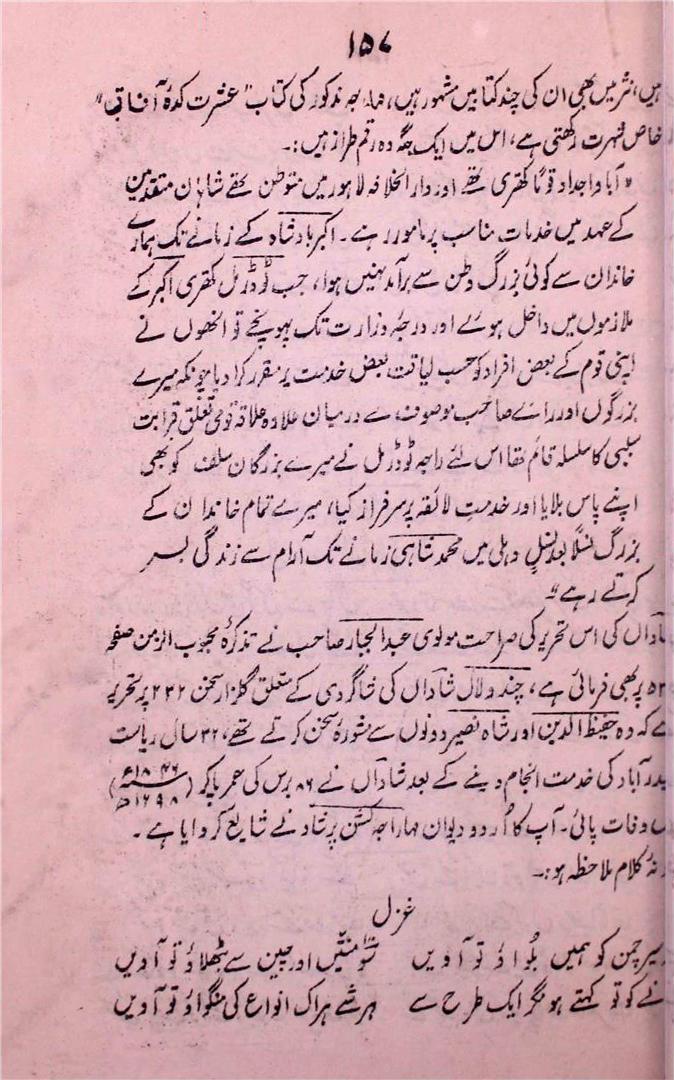 ۱۵۷
ہیں، نثر میں بھی ان کی چند کتابیں مشہور ہیں، مہاراجہ مذکور کی کتاب "عشرت کدۂ آفاق"
خاص شہرت رکھتی ہے، اس میں ایک جگہ وہ رقم طراز ہیں:۔
"آبا و اجداد قوماً کھتری تھے اور دارالخلافہ لاہور میں متوطن تھے شاہان متقدمین
کے عہد میں خدمات مناسب پر مامور رہے۔ اکبر بادشاہ کے زمانے تک ہمارے
خاندان سے کوئی بزرگ وطن سے برآمد نہیں ہوا، جب ٹوڈرمل کھتری اکبر کے
ملازموں میں داخل ہوئے اور درجۂ وزارت تک پہونچے تو انھوں نے
اپنی قوم کے بعض افراد کو حسب لیاقت بعض خدمت پر مقرر کرا دیا چونکہ میرے
بزرگوں اور رائے صاحب موصوف کے درمیان علاوہ علاقہ قومی تعلق قرابت
سببی کا سلسلہ قائم تھا اس لئے راجہ ٹوڈرمل نے میرے بزرگان سلف کو بھی
اپنے پاس بلایا اور خدمت لائقہ پر سرفراز کیا، میرے تمام خاندان کے
بزرگ نسلاً بعد نسلٍ دہلی میں محمد شاہی زمانے تک آرام سے زندگی بسر
کرتے رہے"۔
شاداں کی اس تحریر کی صراحت مولوی عبدالجبار صاحب نے تذکرۂ محبوب الزمن صفحہ
پر بھی فرمائی ہے، چندو لال شاداں کی شاگردی کے متعلق گلزار سخن ۲۳۲ پر تحریر
ہے کہ وہ حفیظ الدین اور شاہ نصیر دونوں سے مشورۂ سخن کرتے تھے، ۳۲ سال ریاست
حیدرآباد کی خدمت انجام دینے کے بعد شاداں نے ۸۶ برس کی عمر پاکر (۱۸۴۶ء
میں وفات پائی۔ آپ کا اُردو دیوان مہاراجہ کشن پرشاد نے شایع کروایا ہے۔
نمونۂ کلام ملاحظہ ہو:۔
غزل
سیر چمن کو ہمیں بُلواؤ تو آویں سَو منتیں اور چین سے بٹھلاؤ تو آویں
نے کو تو کہتے ہو مگر ایک طرح سے ہر شے ہر اک انواع کی منگواؤ تو آویں